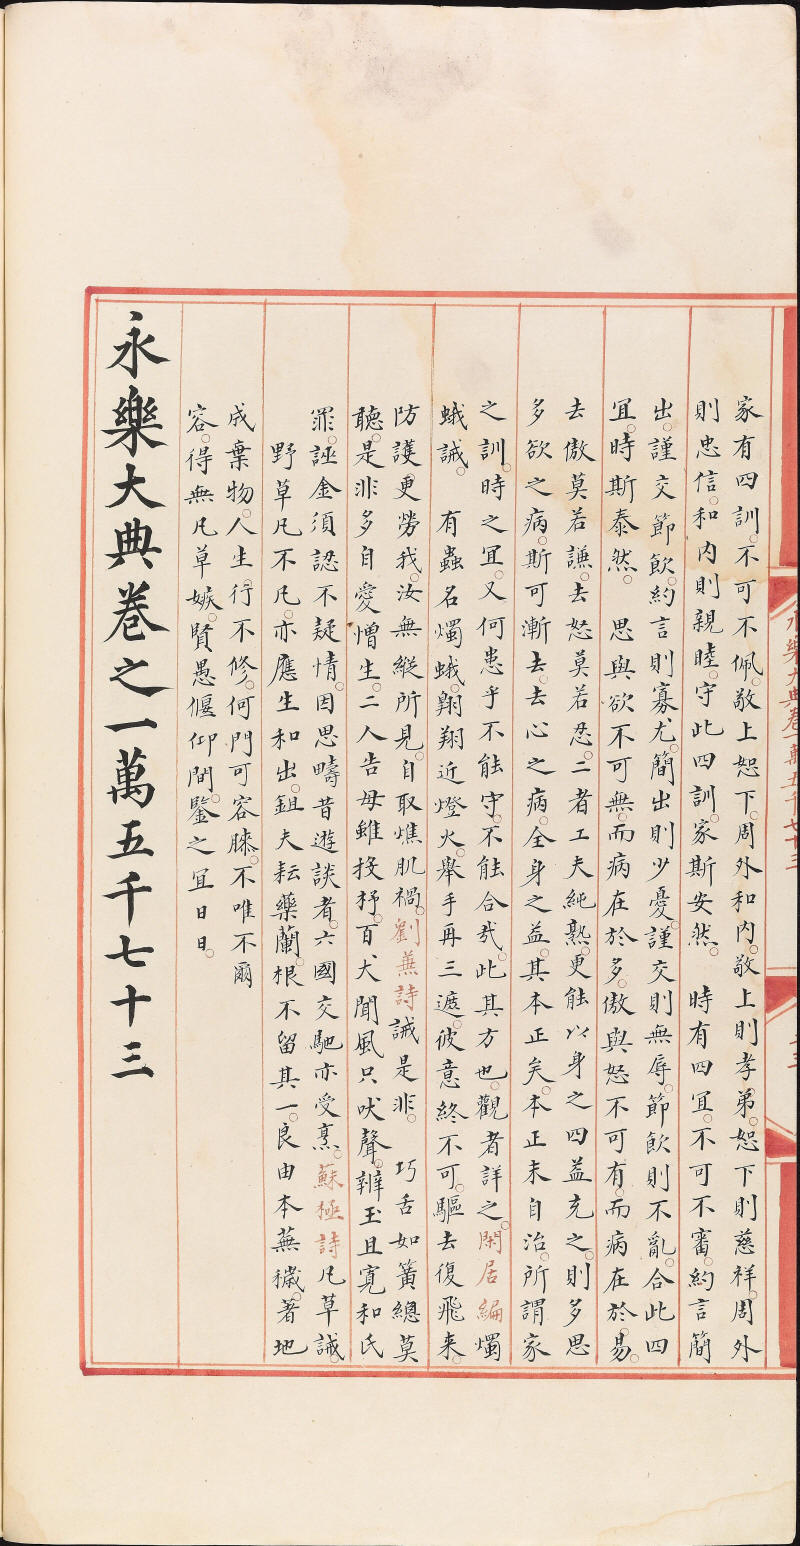 家有四訓不可不佩敬上恕下周外和内敬上則孝弟恕下則慈祥周外
則忠信和内則親睦守此四訓家斯安然 時有四宜不可不審約言簡
出謹交節飲約言則寡尤簡出則少憂謹交則無辱節飲則不亂合此四
宜時斯泰然 思與欲不可無而病在於多傲與怒不可有而病在於易
去傲莫若謙去怒莫若忍二者工夫純熟更能以身之四益充之則多思
多欲之病斯可漸去去心之病全身之益其本正矣本正末自治所謂家
之訓時之宜又何患乎不能守不能合哉此其方也觀者詳之閑居編燭
蛾誡 有蟲名燭蛾翱翔近燈火舉手再三遮彼意終不可驅去復飛来
防護更勞我汝無縱所見自取燋肌禍劉蕪詩誡是非 巧舌如簧總莫
聽是非多自愛憎生二人告母雖投杼百犬聞風只吠聲辨玉且寛和氏
罪誣金須認不疑情因思疇昔遊談者六國交馳亦受烹蘇極詩凡草誡
野草凡不凡亦應生和出鉏夫耘藥蘭根不留其一良由本蕪穢著地
成棄物人生行不修何門可容膝不唯不爾
容得無凡草嫉賢愚偃仰間鑒之宜日日
永樂大典卷之一萬五千七十三